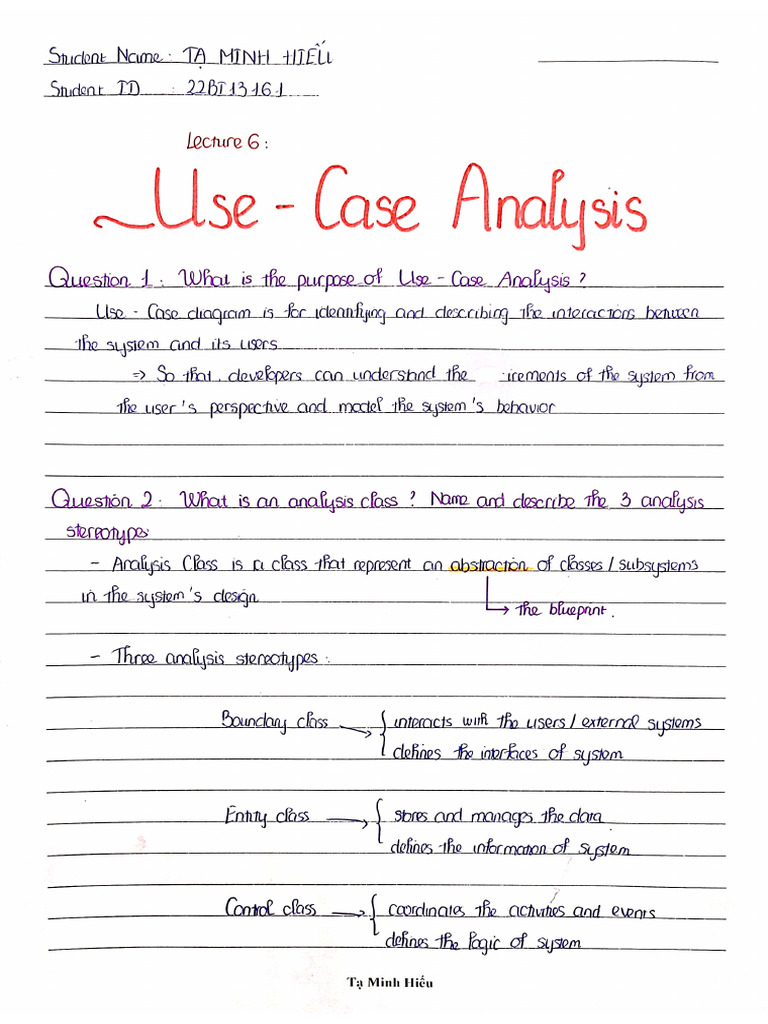 Student Name : TẠ MINH HIẾU
Student ID : 22BI13161
Lecture 6 :
Use - Case Analysis
Question 1 : What is the purpose of Use - Case Analysis ?
Use - Case diagram is for identifying and describing the interactions between
the system and its users
=> So that developers can understand the irements of the system from
the user's perspective and model the system's behavior
Question 2 : What is an analysis class ? Name and describe the 3 analysis
stereotypes.
- Analysis Class is a class that represent an abstraction of classes / subsystems
in the system's design
↳ the blueprint.
- Three analysis stereotypes :
Boundary class → { interacts with the users / external systems
defines the interfaces of system
Entity class → { stores and manages the data
defines the information of system
Control class → { coordinates the activities and events
defines the logic of system
Tạ Minh Hiếu